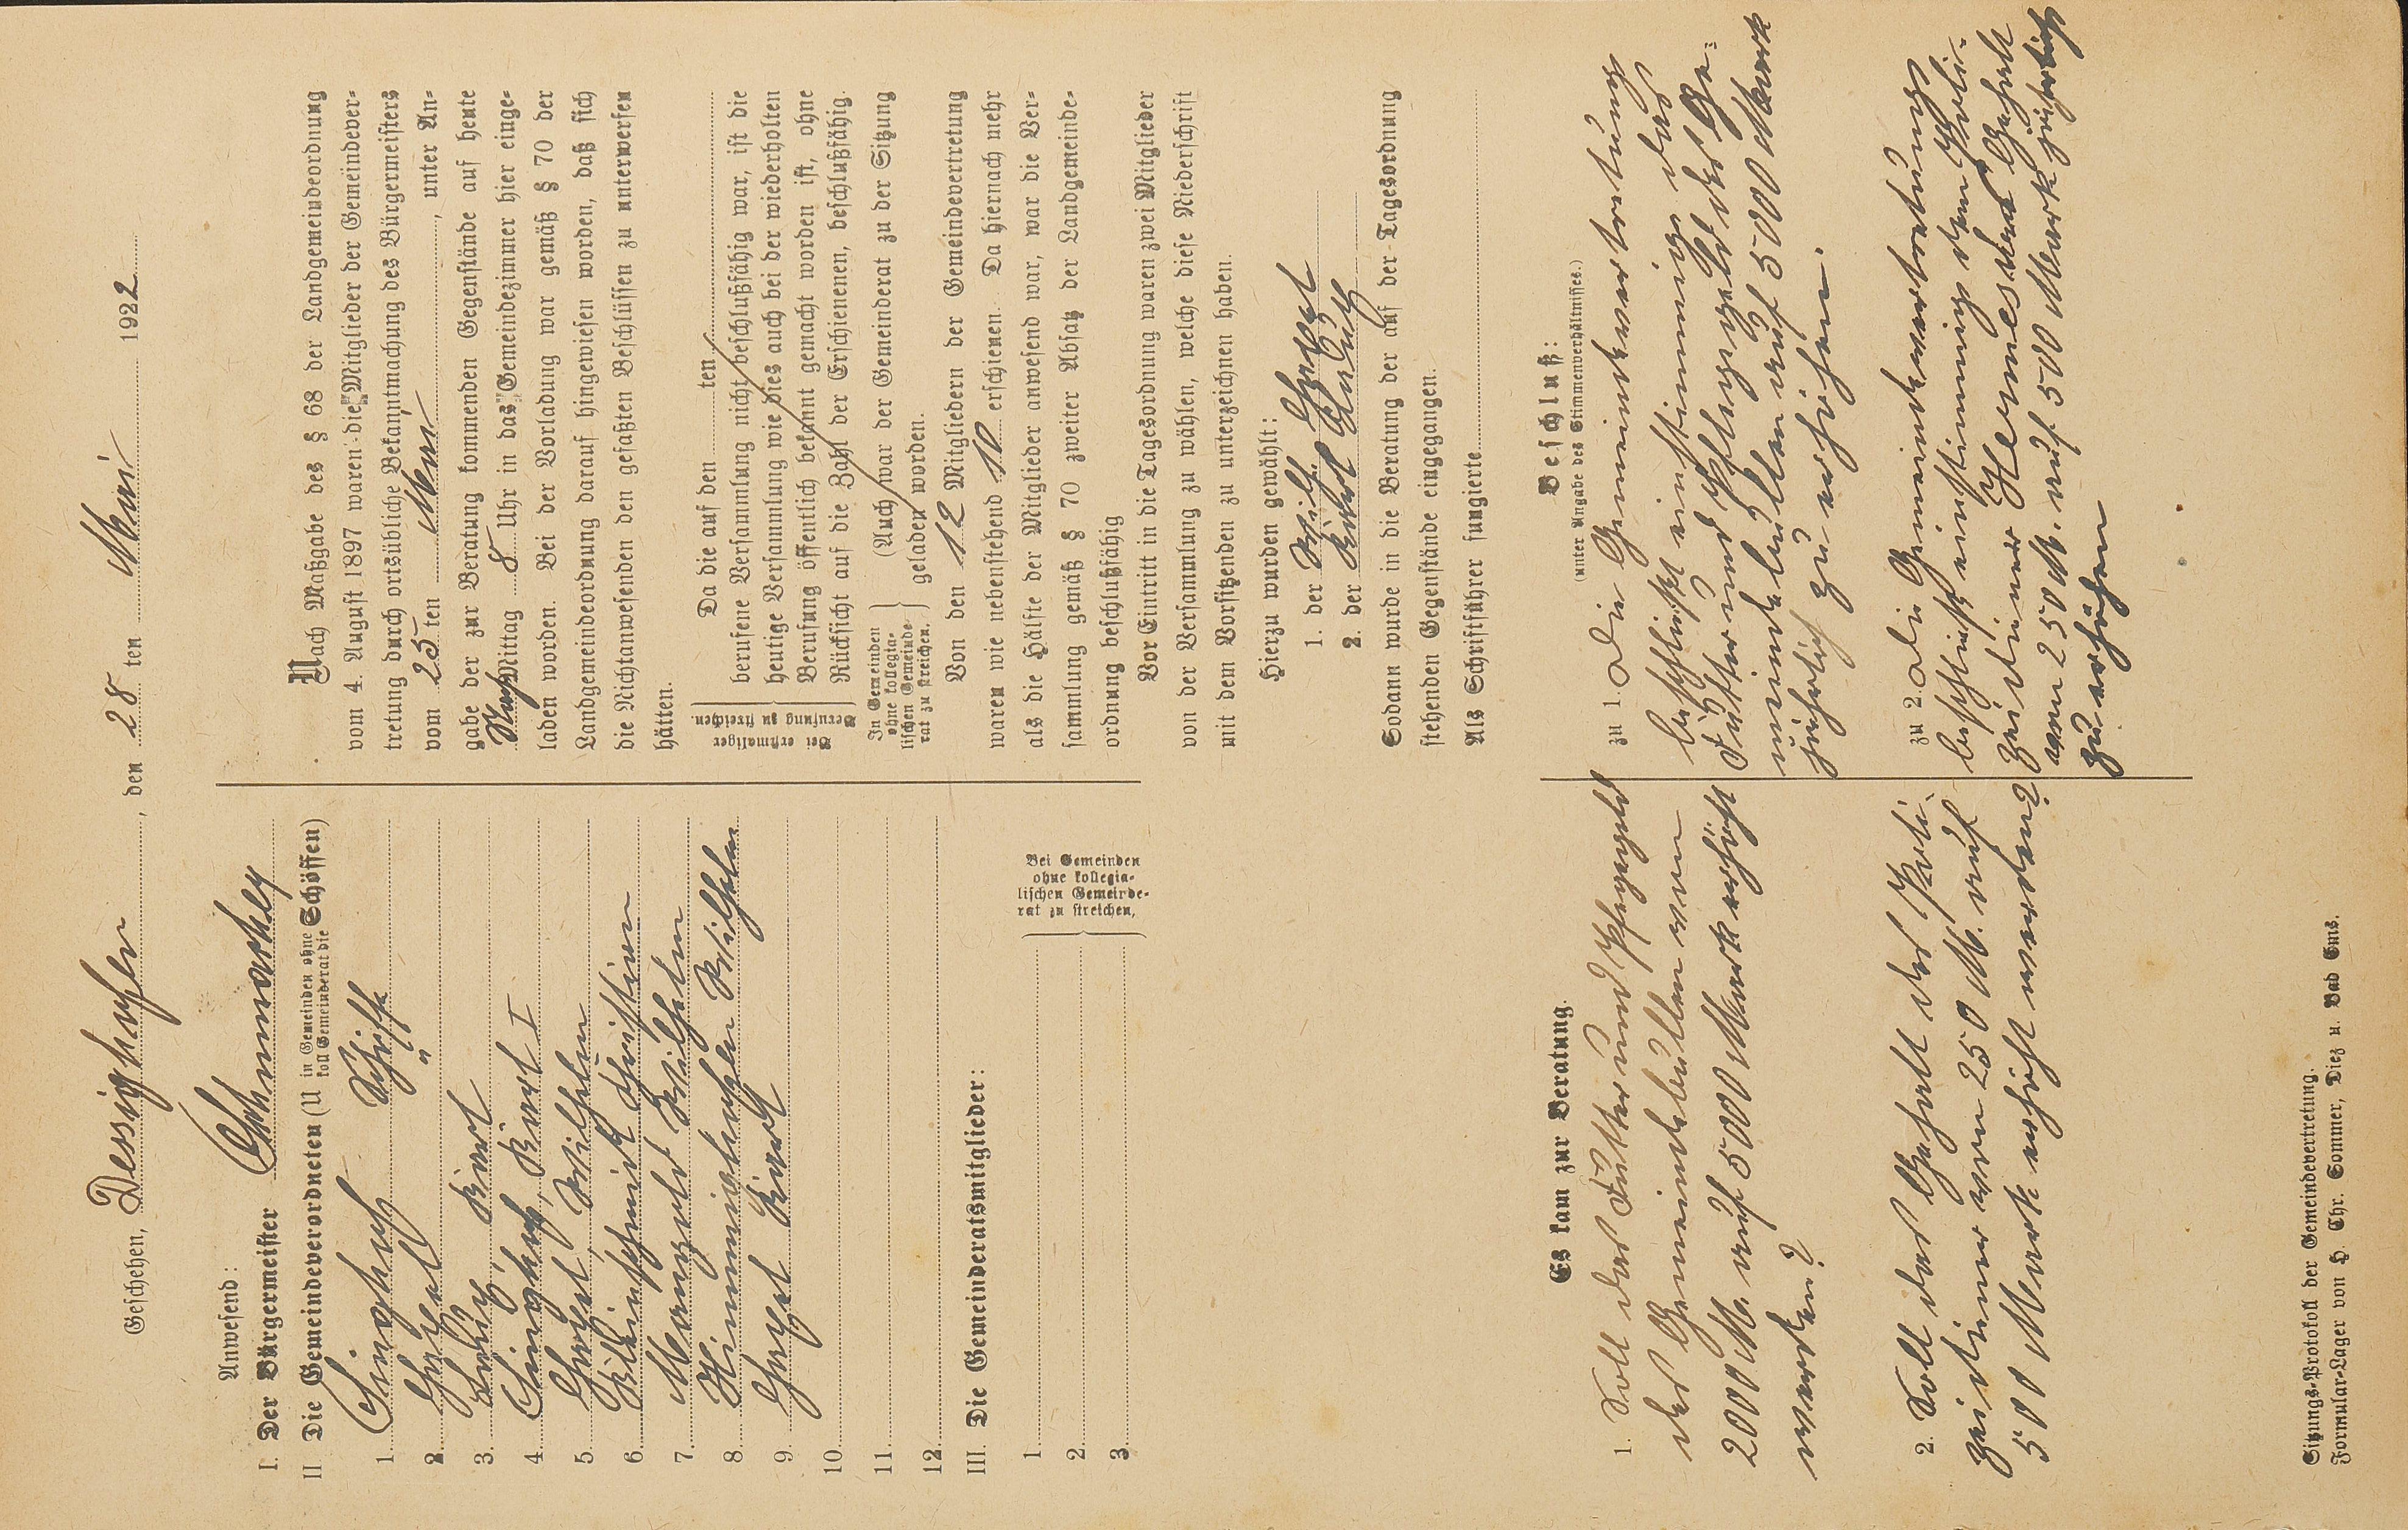 Geschehen, Dessighofen, den 28 ten Mai 1922
Anwesend:
I. Der Bürgermeister
II Die Gemeindeverordneten (U in Gemeinden ohne koll Gemeinderat die Schöffen)
1. Schöffe
2. "
3. Karl
4. Karl I
5. Wilhelm
6. Kleinschmidt Christian
7. Wilhelm
8. Wilhelm
9. Karl
10.
11
12
III. Die Gemeinderatsmitglieder:
1
2.
3.
Bei Gemeinden
ohne kollegia-
lischen Gemeinde-
rat zu streichen,
Nach Maßgabe des § 68 der Landgemeindeordnung
vom 4. August 1897 waren die Mitglieder der Gemeindever-
tretung durch ortsübliche Bekanntmachung des Bürgermeisters
vom 25 ten Mai, unter An-
gabe der zur Beratung kommenden Gegenstände auf heute
Nach Mittag 8 Uhr in das Gemeindezimmer hier einge-
laden worden. Bei der Vorladung war gemäß § 70 der
Landgemeindeordnung darauf hingewiesen worden, daß sich
die Nichtanwesenden den gefaßten Beschlüssen zu unterwerfen
hätten.
Bei erstmaliger
Berufung zu streichen.
Da die auf den ten
berufene Versammlung nicht beschlußfähig war, ist die
heutige Versammlung wie dies auch bei der wiederholten
Berufung öffentlich bekannt gemacht worden ist, ohne
Rücksicht auf die Zahl der Erschienenen, beschlußfähig.
In Gemeinden
ohne kollegia-
lischen Gemeinde-
rat zu streichen.
(Auch war der Gemeinderat zu der Sitzung
geladen worden.
Von den 12 Mitgliedern der Gemeindevertretung
waren wie nebenstehend 10 erschienen. Da hiernach mehr
als die Hälfte der Mitglieder anwesend war, war die Ver-
sammlung gemäß § 70 zweiter Absatz der Landgemeinde-
ordnung beschlußfähig
Vor Eintritt in die Tagesordnung waren zwei Mitglieder
von der Versammlung zu wählen, welche diese Niederschrift
mit dem Vorsitzenden zu unterzeichnen haben.
Hierzu wurden gewählt:
1. der Wilh.
2. der Karl
Sodann wurde in die Beratung der auf der Tagesordnung
stehenden Gegenstände eingegangen.
Als Schriftführer fungierte
Es kam zur Beratung.
1. Soll das Futter und Pflegegeld
des Gemeindebullen von
2000 M. auf 5000 Mark erhöht
werden?
2. Soll das Gehalt des Poli-
zeidiener von 250 M. auf
500 Mark erhöht werden?
Beschluß:
(unter Angabe des Stimmenverhältnisses.)
zu 1. Die Gemeindevertretung
beschließt einstimmig das
Futter und Pflegegeld des Ge-
meindebullen auf 5000 Mark
jährlich zu erhöhen.
zu 2. Die Gemeindevertretung
beschließt einstimmig dem Poli-
zeidiener Gehalt
von 250 M. auf 500 Mark jährlich
zu erhöhen
Sitzungs-Protokoll der Gemeindevertretung.
Formular-Lager von H. Chr. Sommer, Diez u. Bad Ems.